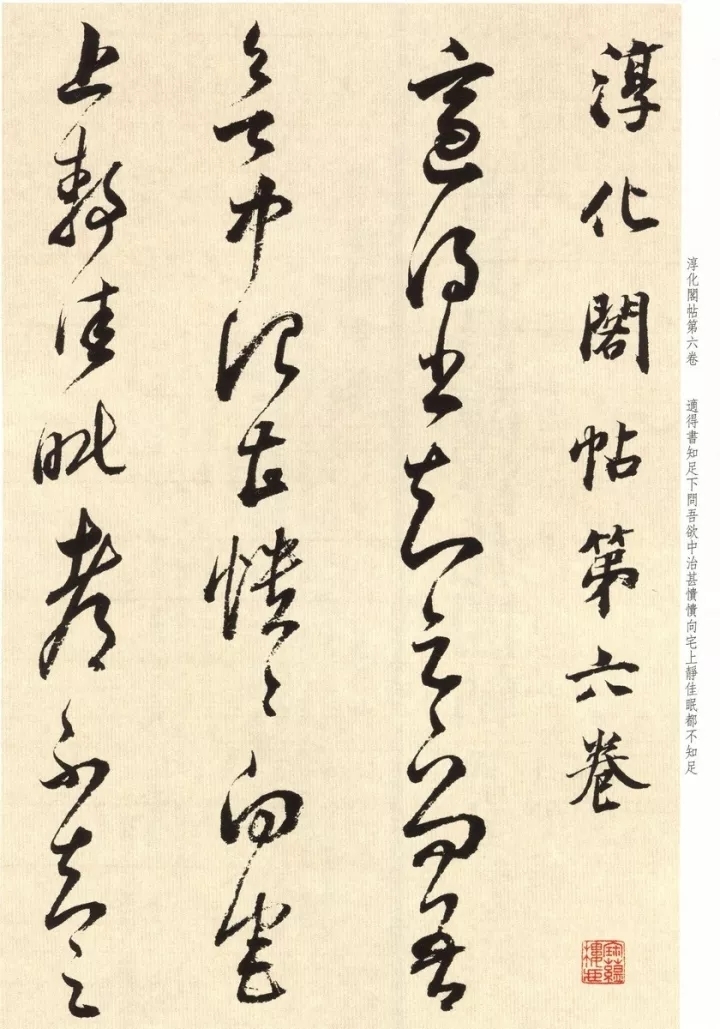 淳化閣帖第六卷
適得書知足下問吾
欲中治甚憒々向宅
上靜佳眠都不知足
淳化閣帖第六卷
適得書知足下問吾欲中治甚憒憒向宅上靜佳眠都不知足